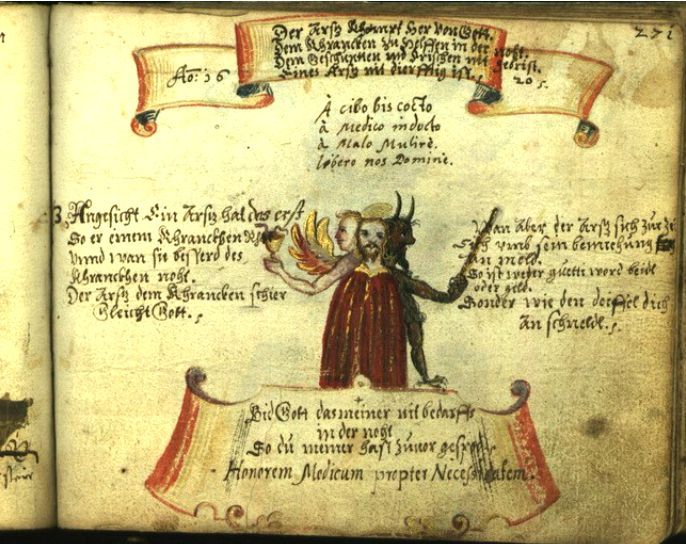 271
Der Artz Khombt Her von Gott.
Dem Khrancken zu Helffen in der noht.
Dem Geschunten und Frischen mit gebrist.
Eines Artz nit dierfftig ist.
Ao: 16
20
À cibo bis cocto
à Medico indocto
à Malo Muliere.
libero nos Domine.
3 Angesicht Ein Artz hat das erst
So er einem Khranckhen
unnd wan sie besserd des
Khranckhen noht.
Der Artz dem Khrancken schier
Gleicht Gott.
Wan Aber der Artz sich zur
Sich umb sein bemiehung
an mold.
So ist weder guetti word
oder geld.
Sonder wie den deiffel dich
An schieldt.
Bid Gott das meiner nit bedarffs
in der noht
So du meiner hast zuvor
Honorem Medicum propter Necessitatem.